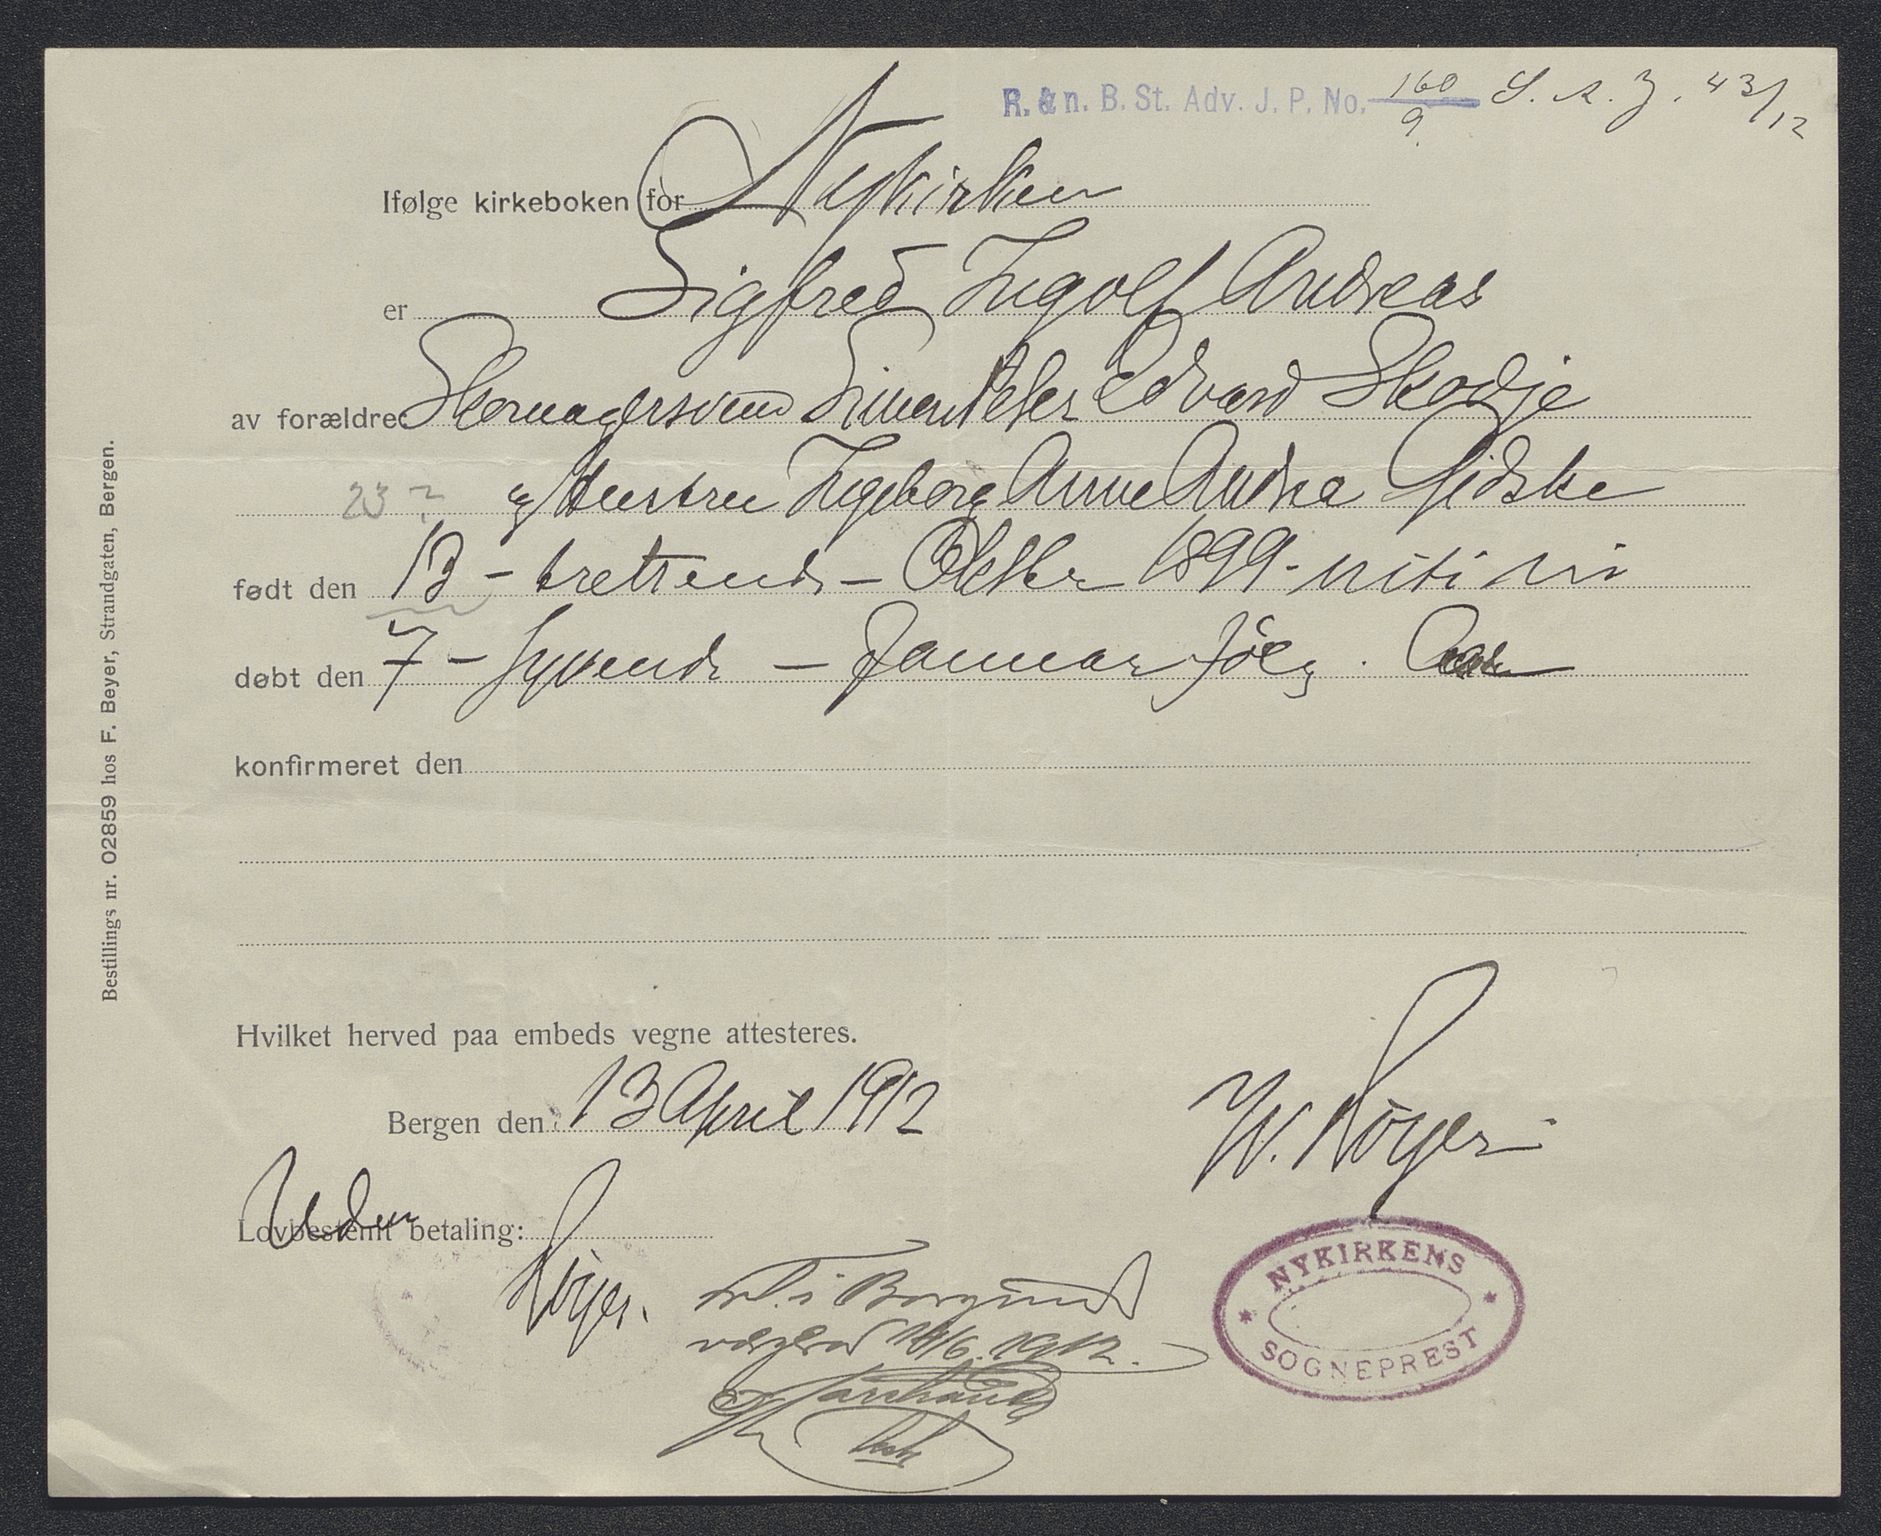 R. & n. B. St. Adv. J. P. No. 160/9 S. A. J. 43/12
Ifølge kirkeboken for Nykirken
er Sigfred Ingolf Andreas
av forældre: Skomagersvend Simen Peter Edvard Skodje
23? og Hustru Ingeborg Anne Andrea Gidske
født den 13 - trettende - Oktbr 1899 - nitini
døbt den 7 - syvende - Januar følg. Aar
konfirmeret den
Hvilket herved paa embeds vegne attesteres.
Bergen den 13 April 1912
W. Køyer
Uden
Lovbestemt betaling:
Køyer.
NYKIRKENS
SOGNEPREST
i Borgund
vergeraad 14/6. 1912.
Bestillings nr. 02859 hos F. Beyer, Strandgaten, Bergen.